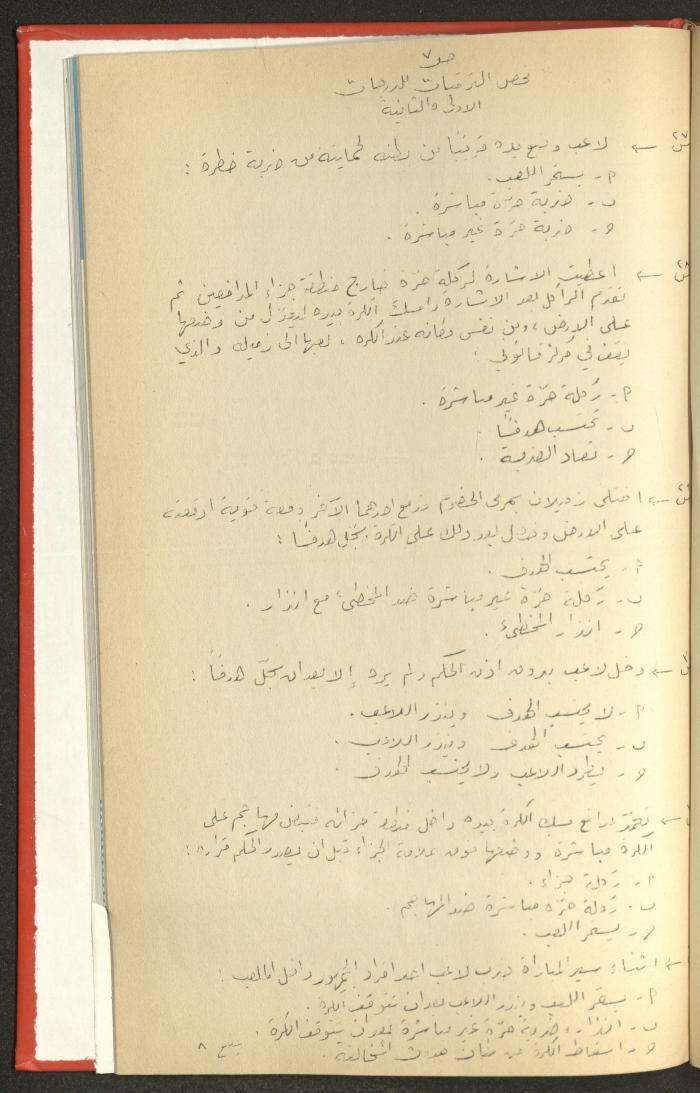 ص٧
فحص الترقيات للدرجات
الاولى والثانية
س٢٧ ← لاعب وضع يده قريبًا من بطنه لحمايته من ضربة خطرة :
م - يستمر اللعب .
ب - ضربة حرّة مباشرة .
ج - ضربة حرّة غير مباشرة .
← اعطيت الاشارة لركلة حرة خارج منطقة جزاء المدافعين ثم
تقدم الراكل بعد الاشارة وامسك الكرة بيده ليعدل من وضعها
على الارض ، ومن نفس مكانه عند الكره ، لعبها الى زميله والذي
يقف في مركز قانوني :
م - ركلة حرّة غير مباشرة .
ب - تحتسب هدفًا .
ج - تعاد الضربة .
← اختلى زميلان بمرمى الخصم ودفع احدهما الآخر دفعة قوية اوقعته
على الارض وحصل بعد ذلك على الكرة وسجل هدفًا :
م - يحتسب الهدف .
ب - ركلة حرّة غير مباشرة ضد المخطئ مع انذار .
ج - انذار المخطئ .
← دخل لاعب بدون اذن الحكم ولم يره إلا بعد ان سجّل هدفًا :
م - لا يحتسب الهدف وينذر اللاعب .
ب - يحتسب الهدف وينذر اللاعب .
ج - يطرد اللاعب ولا يحتسب الهدف .
← تعمّد مدافع مسك الكرة بيده داخل منطقة جزائه فقبض مهاجم على
الكرة مباشرة ووضعها فوق علامة الجزاء قبل ان يصدر الحكم قراره :
م - ركلة جزاء .
ب - ركلة حرّة مباشرة ضد المهاجم .
ج - يستمر اللعب .
← اثناء سير المباراة ضرب لاعب احد افراد الجمهور داخل الملعب :
م - يستمر اللعب وينذر اللاعب بعد ان تتوقف الكرة .
ب - انذار وضربة حرّة غير مباشرة بعد ان تتوقف الكرة .
ج - اسقاط الكرة من مكان حدوث المخالفة .
يتبع ٨